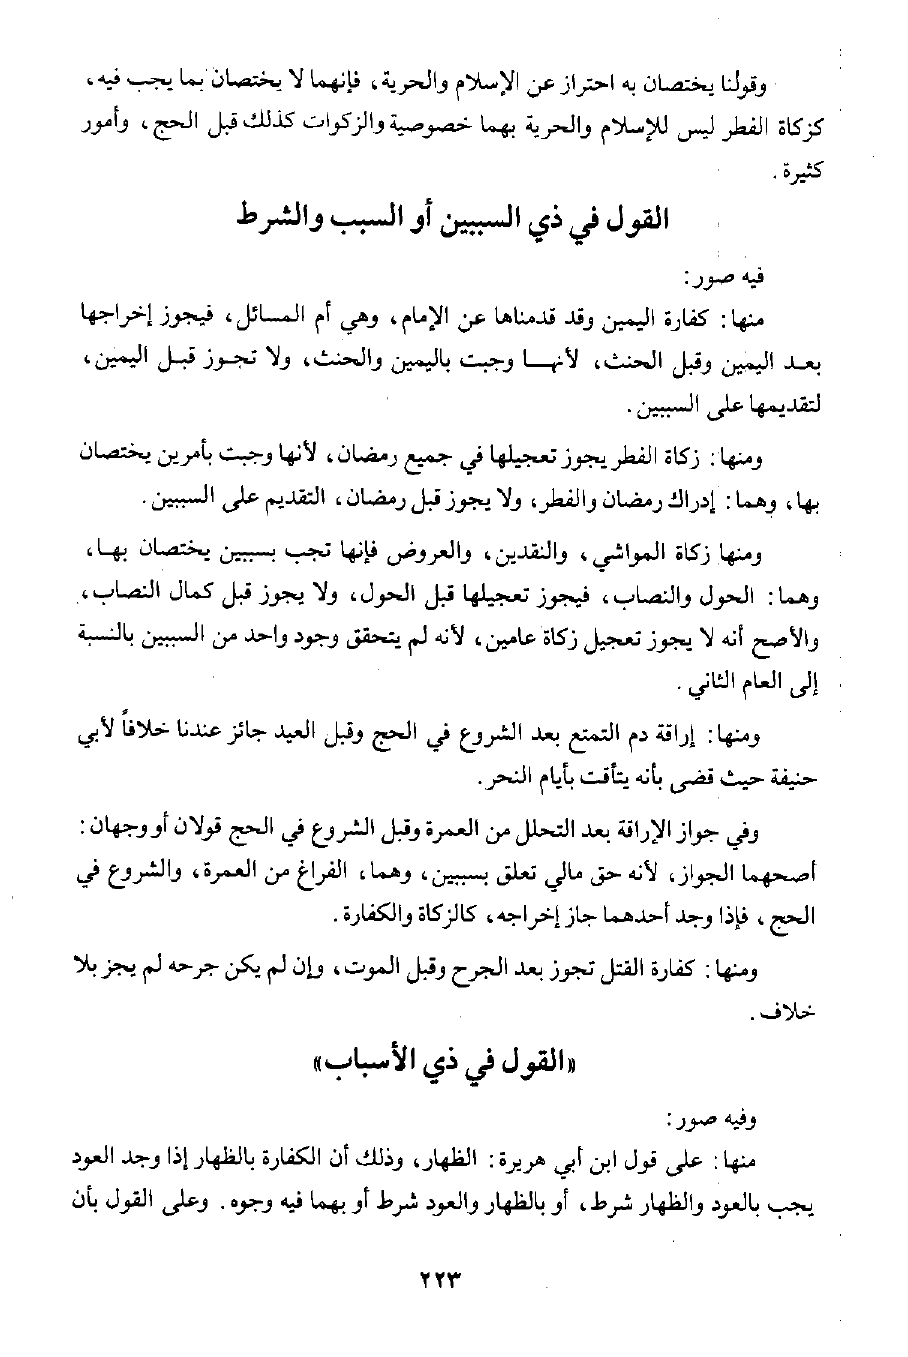 وقولنا يختصان به احتراز عن الإسلام والحرية، فإنهما لا يختصان بما يجب فيه،
كزكاة الفطر ليس للإسلام والحرية بهما خصوصية والزكوات كذلك قبل الحج، وأمور
كثيرة.
القول في ذي السببين أو السبب والشرط
فيه صور:
منها: كفارة اليمين وقد قدمناها عن الإمام، وهي أم المسائل، فيجوز إخراجها
بعد اليمين وقبل الحنث، لأنها وجبت باليمين والحنث، ولا تجوز قبل اليمين،
لتقديمها على السببين.
ومنها: زكاة الفطر يجوز تعجيلها في جميع رمضان، لأنها وجبت بأمرين يختصان
بها، وهما: إدراك رمضان والفطر، ولا يجوز قبل رمضان، التقديم على السببين.
ومنها زكاة المواشي، والنقدين، والعروض فإنها تجب بسببين يختصان بها،
وهما: الحول والنصاب، فيجوز تعجيلها قبل الحول، ولا يجوز قبل كمال النصاب،
والأصح أنه لا يجوز تعجيل زكاة عامين، لأنه لم يتحقق وجود واحد من السببين بالنسبة
إلى العام الثاني.
ومنها: إراقة دم التمتع بعد الشروع في الحج وقبل العيد جائز عندنا خلافاً لأبي
حنيفة حيث قضى بأنه يتأقت بأيام النحر.
وفي جواز الإراقة بعد التحلل من العمرة وقبل الشروع في الحج قولان أو وجهان:
أصحهما الجواز، لأنه حق مالي تعلق بسببين، وهما، الفراغ من العمرة، والشروع في
الحج، فإذا وجد أحدهما جاز إخراجه، كالزكاة والكفارة.
ومنها: كفارة القتل تجوز بعد الجرح وقبل الموت، وإن لم يكن جرحه لم يجز بلا
خلاف.
«القول في ذي الأسباب»
وفيه صور:
منها: على قول ابن أبي هريرة: الظهار، وذلك أن الكفارة بالظهار إذا وجد العود
يجب بالعود والظهار شرط، أو بالظهار والعود شرط أو بهما فيه وجوه. وعلى القول بأن
٢٢٣